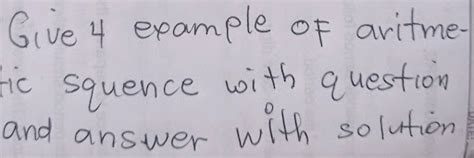 Give 4 example of aritme-
tic squence with question
and answer with solution